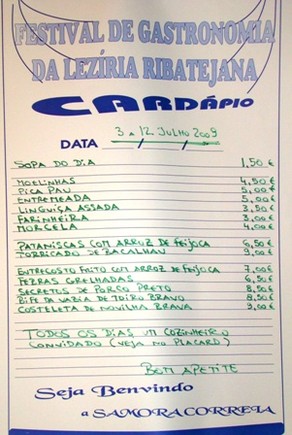 FESTIVAL DE GASTRONOMIA
DA LEZÍRIA RIBATEJANA
CARDÁPIO
DATA 3 a 12 JULHO 2009
SOPA DO DIA 1,50 €
MOELINHAS 4,50 €
PICA PAU 5,00 €
ENTREMEADA 5,00 €
LINGUIÇA ASSADA 3,50 €
FARINHEIRA 3,00 €
MORCELA 4,00 €
PATANISCAS COM ARROZ DE FEIJOCA 6,50 €
TORRICADO DE BACALHAU 9,00 €
ENTRECOSTO FRITO COM ARROZ DE FEIJOCA 7,00 €
FEBRAS GRELHADAS 6,50 €
SECRETOS DE PORCO PRETO 8,50 €
BIFE DA VAZIA DE TOIRO BRAVO 8,50 €
COSTELETA DE NOVILHA BRAVA 9,00 €
TODOS OS DIAS UM COZINHEIRO
CONVIDADO (VEJA NO PLACARD)
BOM APETITE
Seja Benvindo
a SAMORA CORREIA